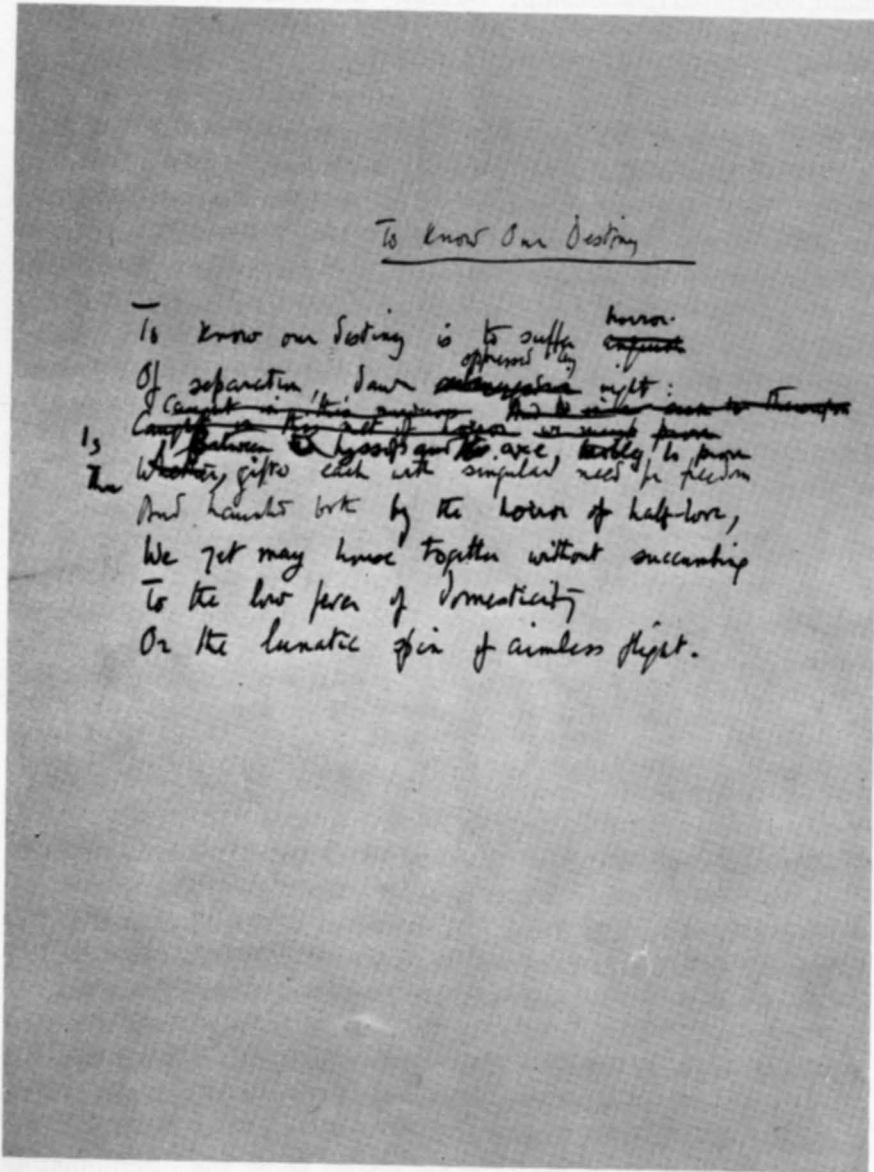 To Know Our Destiny
To know our destiny is to suffer horror
Of separation, dawn oppressed by night:
Is between hyssop and axe, boldly to prove
That gifted each with singular need for freedom
And haunted both by the horror of half-love,
We yet may house together without succumbing
To the low fever of domesticity
Or the lunatic spin of aimless flight.